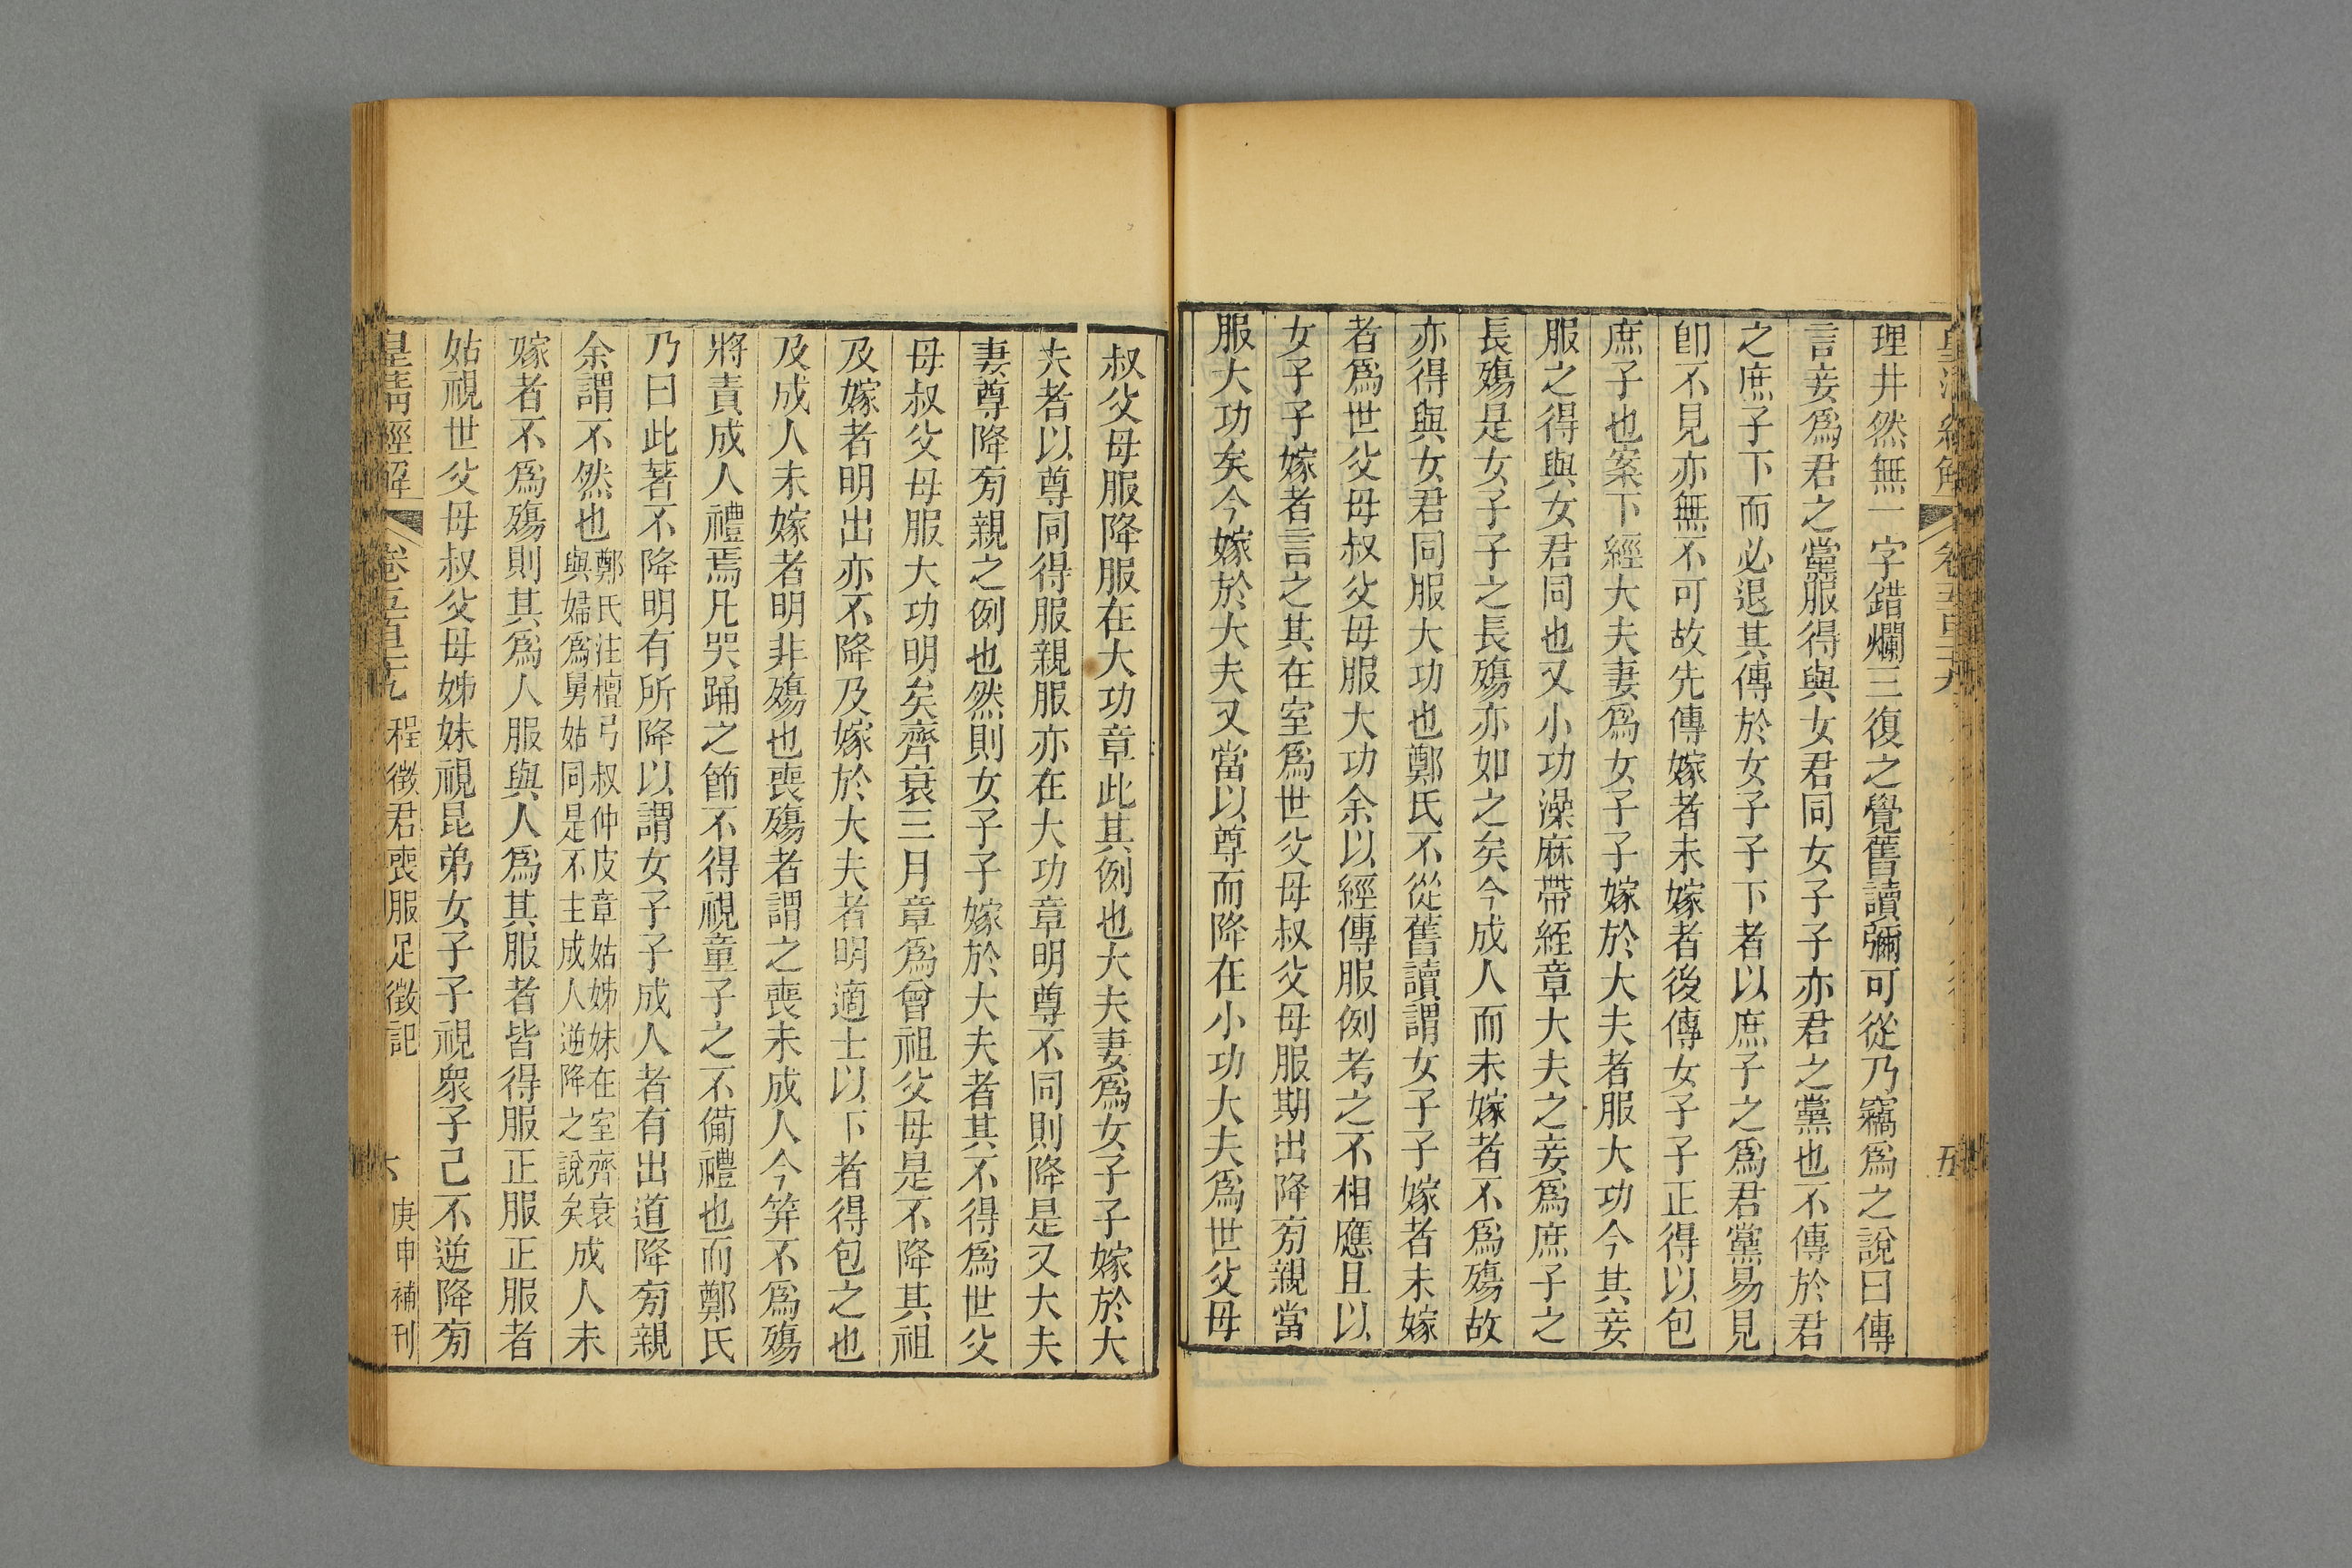 理井然無一字錯爛三復之覺舊讀彌可從乃竊爲之說曰傳
言妾爲君之黨服得與女君同女子子亦君之黨也不傳於君
之庶子下而必退其傳於女子子下者以庶子之爲君黨易見
卽不見亦無不可故先傳嫁者未嫁者後傳女子子正得以包
庶子也案下經大夫妻爲女子子嫁於大夫者服大功今其妾
服之得與女君同也又小功澡麻帶絰章大夫之妾爲庶子之
長殤是女子子之長殤亦如之矣今成人而未嫁者不爲殤故
亦得與女君同服大功也鄭氏不從舊讀謂女子子嫁者未嫁
者爲世父母叔父母服大功余以經傳服例考之不相應且以
女子子嫁者言之其在室爲世父母叔父母服期出降旁親當
服大功矣今嫁於大夫又當以尊而降在小功大夫爲世父母
叔父母服降服在大功章此其例也大夫妻爲女子子嫁於大
夫者以尊同得服親服亦在大功章明尊不同則降是又大夫
妻尊降旁親之例也然則女子子嫁於大夫者其不得爲世父
母叔父母服大功明矣齊衰三月章爲曾祖父母是不降其祖
及嫁者明出亦不降及嫁於大夫者明適士以下者得包之也
及成人未嫁者明非殤也喪殤者謂之喪未成人今笄不爲殤
將責成人禮焉凡哭踊之節不得視童子之不備禮也而鄭氏
乃曰此著不降明有所降以謂女子子成人者有出道降旁親
余謂不然也鄭氏注檀弓叔仲皮章姑姊妹在室齊衰與婦爲舅姑同是不主成人逆降之說矣成人未
嫁者不爲殤則其爲人服與人爲其服者皆得服正服正服者
姑視世父母叔父母姊妹視昆弟女子子視衆子己不逆降旁
皇清經解 卷五百二十九 程徵君喪服足徵記 六 庚申補刊